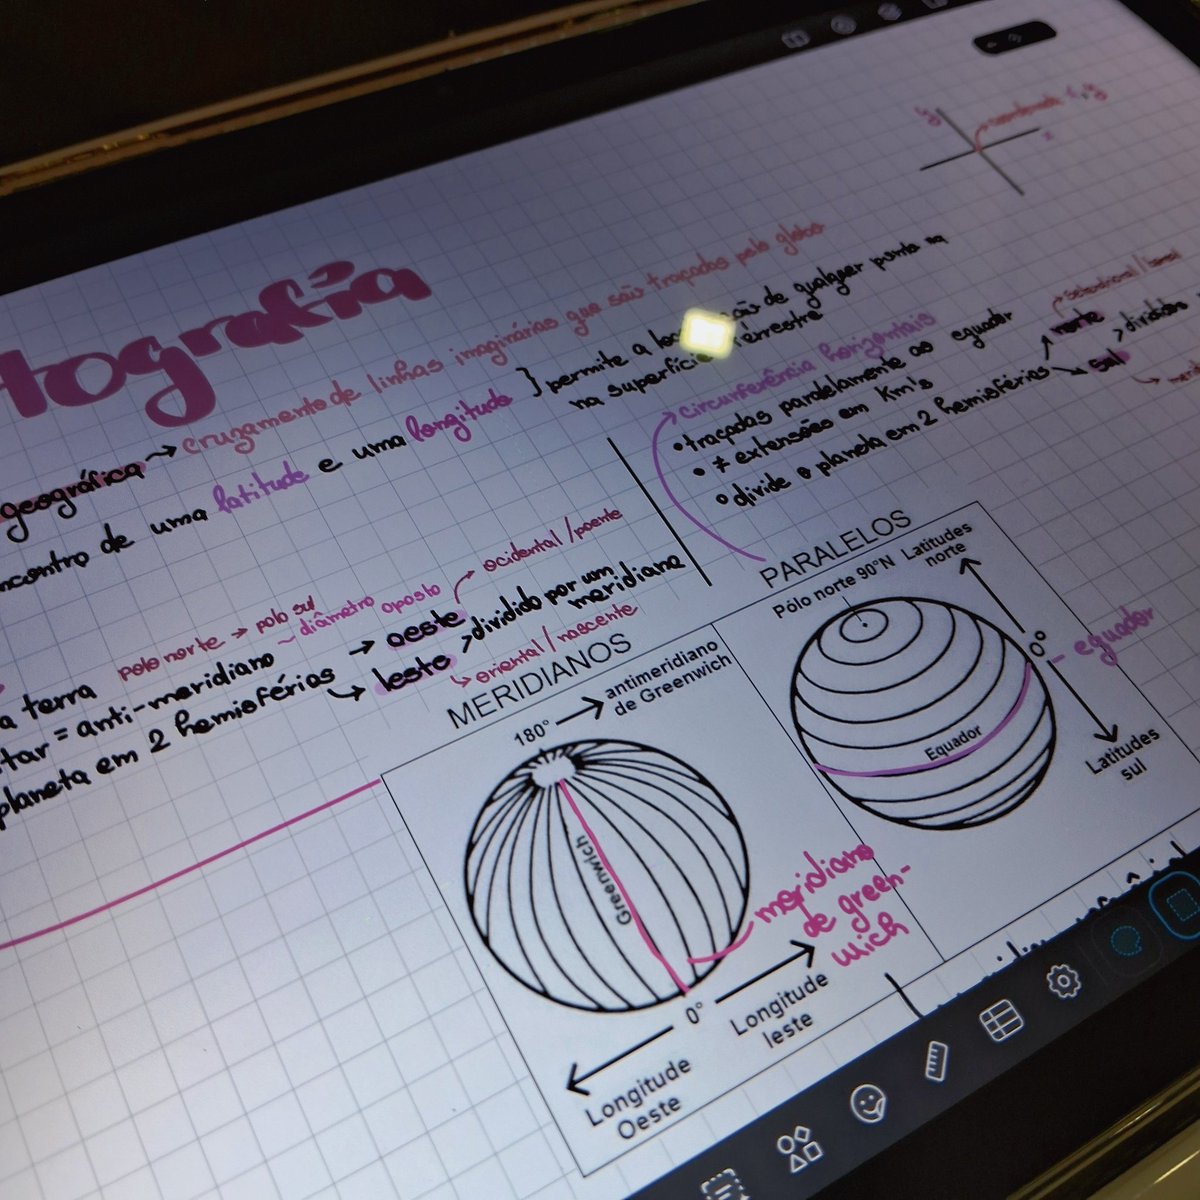 tografia
y
x
geográfica → cruzamento de linhas imaginárias que são traçadas pelo globo
ncontro de uma latitude e uma longitude } permite a loc ção de qualquer ponto na
na superfíci terrestre
circunferência horizontais
• traçadas paralelamente ao equador
• ≠ extensões em Km's
• divide o planeta em 2 hemisférios
norte
sul
> dividos
polo norte → polo sul
a terra
tar = anti-meridiano ~ diâmetro oposto
planeta em 2 hemisférios
→ oeste
→ ocidental/poente
→ leste
→ oriental/nascente
> dividido por um
meridiano
MERIDIANOS
180°
antimeridiano
de Greenwich
Greenwich
meridiano
de green-
wich
0°
Longitude
leste
Longitude
Oeste
PARALELOS
Pólo norte 90°N
Latitudes
norte
0°
- equador
Equador
Latitudes
sul